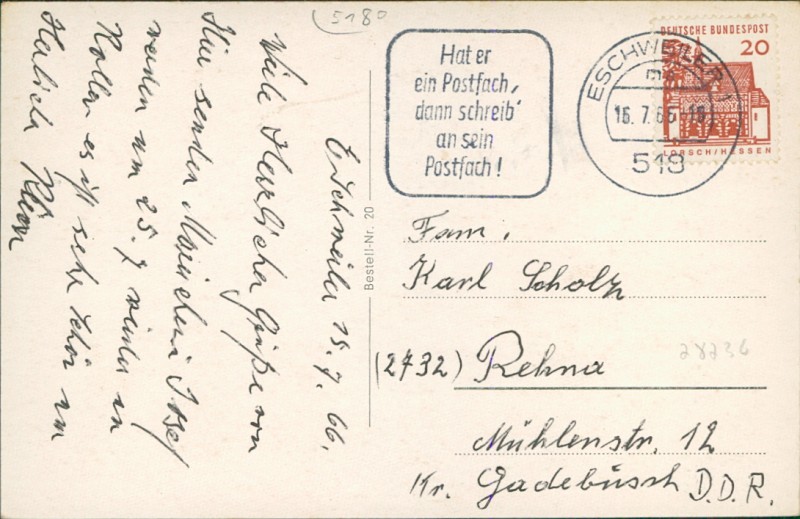 (5180
Eschweiler 15.7.66.
Viele Herzliche Grüße von
Hier senden Mariechen Josef
werden am 25.7 wieder in
es ist sehr schön im
Herlich Rhein
Bestell-Nr. 20
Hat er
ein Postfach,
dann schreib'
an sein
Postfach!
ESCHWEILER 1
16.7.66-18
518
DEUTSCHE BUNDESPOST
20
LORSCH/HESSEN
Fam.
Karl Scholz
(2732) Rehna
28236
Mühlenstr. 12
Kr. Gadebusch D.D.R.